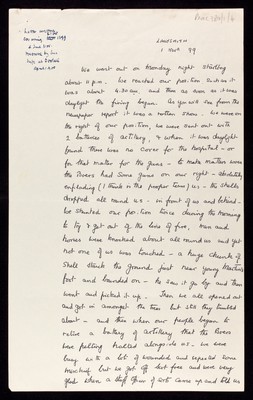 LADYSMITH
1 Nov 99
We went out on Monday night starting
about 11 p.m. We reached our position such as it
was about 4.30 am and then as soon as it was
daylight the firing began. As you will see from the
newspaper report it was a rotten show. We were on
the right of our position, we were sent out with
2 batteries of artillery, & when it was daylight
found there was no cover for the Hospital - or
for that matter for the guns - to make matters worse
the Boers had some guns on our right - absolutely
enfilading (I think is the proper term) us - the shells
dropped all round us - in front of us and behind -
We shunted our position twice during the morning
to try & get out of the line of fire, men and
horses were knocked about all round us and yet
not one of us was touched - a huge chunk of
shell struck the ground just near young
foot and bounded on - he saw it go by and then
went and picked it up. Then we all opened out
and got in amongst the tents but still they tumbled
about - and then when our people began to
retire a battery of artillery that the Boers
were pelting halted alongside us. We were
busy with a lot of wounded and expected some
trouble but we got off scot free and were very
glad when a staff officer of sorts came up and told us